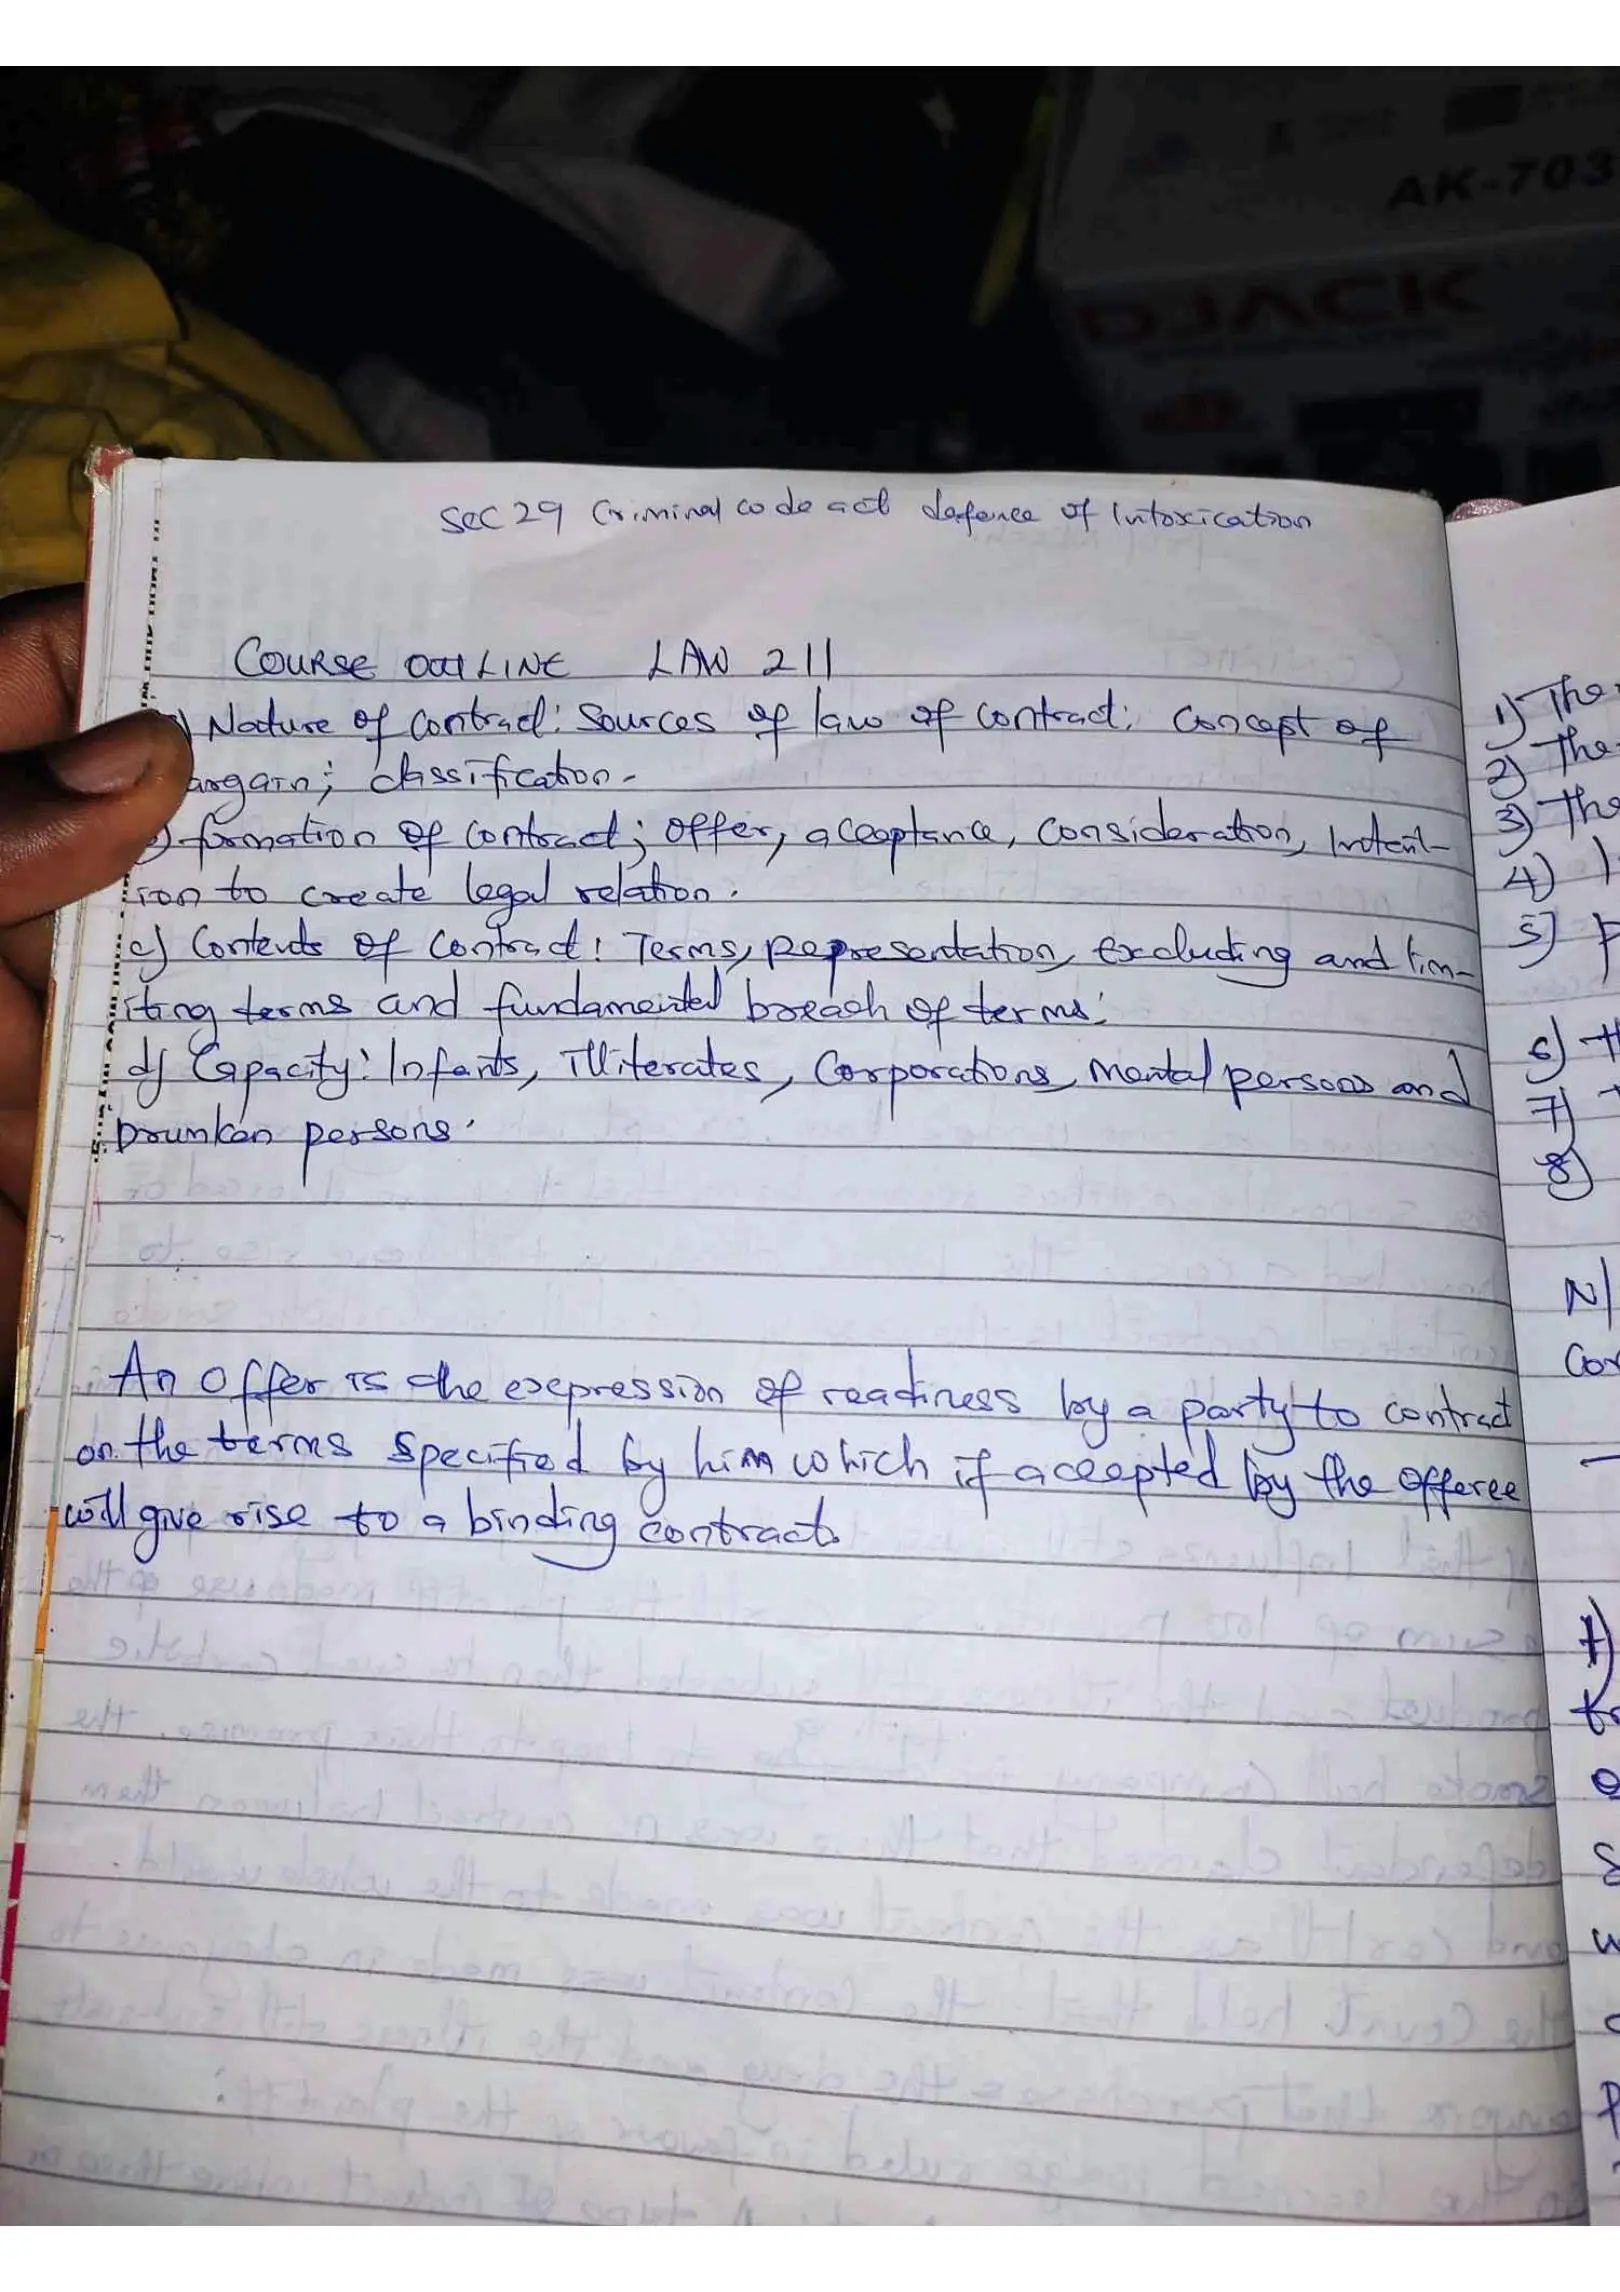 AK-703
DJACK
Sec 29 Criminal code act defence of Intoxication
COURSE OUTLINE LAW 211
Nature of contract: Sources of law of contract: Concept of
argain; classification.
formation of contract; offer, acceptance, consideration, Intent-
ion to create legal relation.
c) Contents of contract: Terms, Representation, Excluding and lim-
iting terms and fundamental breach of terms:
d) Capacity: Infants, Illiterates, Corporations, Mental persons and
Drunken persons.
An Offer is the expression of readiness by a party to contract
on the terms specified by him which if accepted by the offeree
will give rise to a binding contract.
1) The
2) The
3) The
4)
5)
6)
7)
8)
N/
Cor